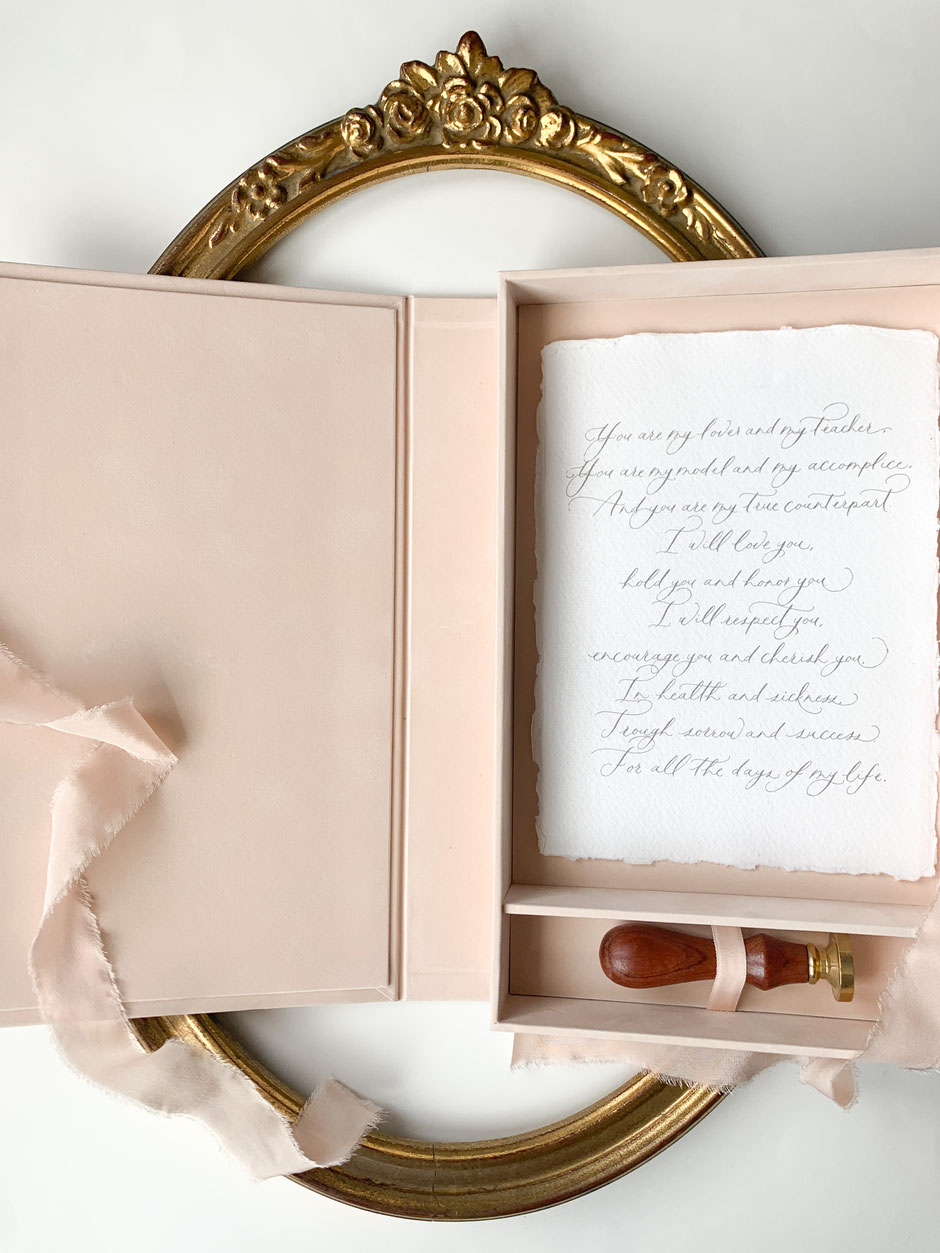 You are my lover and my teacher,
You are my model and my accomplice.
And you are my true counterpart.
I will love you,
hold you and honor you
I will respect you,
encourage you and cherish you.
In health and sickness
Trough sorrow and success
For all the days of my life.